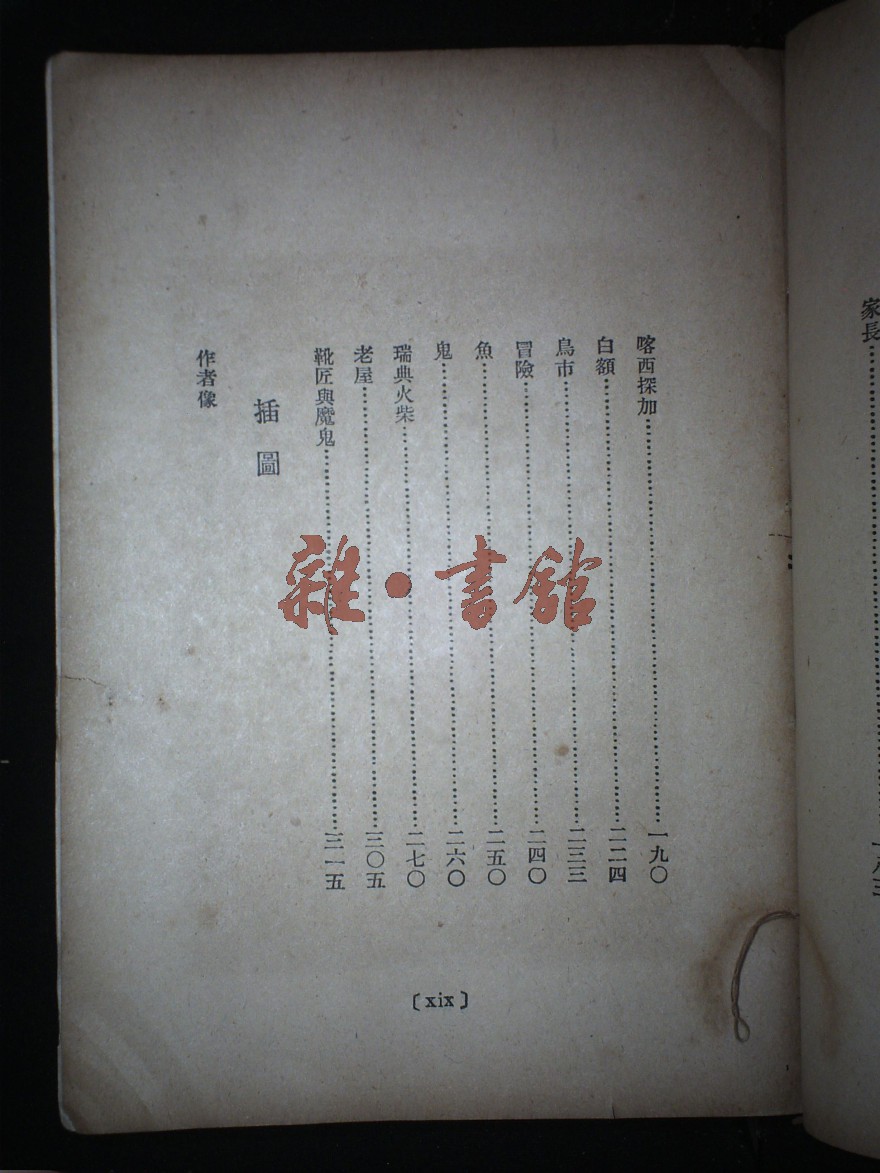 家長……一八三
喀西探加……一九〇
白額……二二四
鳥市……二三三
冒險……二四〇
魚……二五〇
鬼……二六〇
瑞典火柴……二七〇
老屋……三〇五
靴匠與魔鬼……三一五
插圖
作者像
〔xix〕
雜·書館